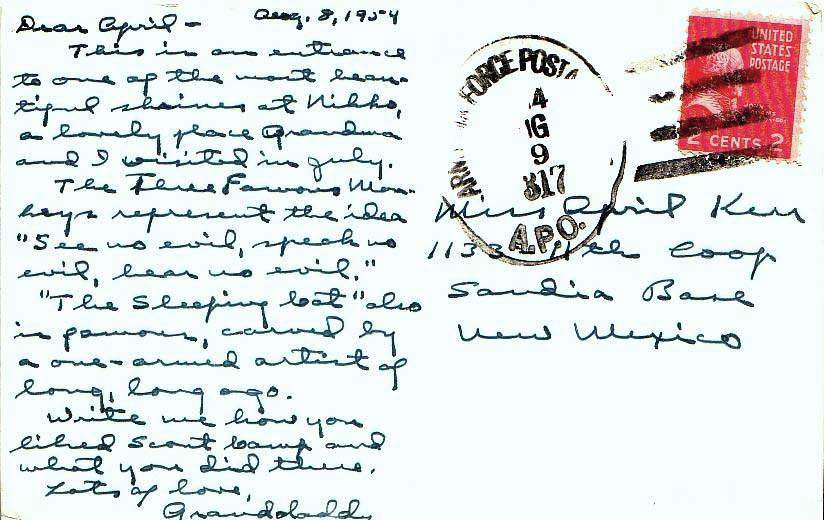 Aug. 8, 1954
Dear April -
This is an entrance
to one of the most beau-
tiful shrines at Nikko,
a lovely place Grandma
and I visited in July.
The Three Famous Mon-
keys represent the idea
"See no evil, speak no
evil, hear no evil."
"The Sleeping Cat" also
is famous, carved by
a one-armed artist of
long, long ago.
Write me how you
liked Scout Camp and
what you did there.
Lots of love,
Granddaddy
FORCE POSTA
4
9
317
A.P.O.
UNITED
STATES
POSTAGE
2 CENTS 2
Miss April Kerr
1133 11th Loop
Sandia Base
New Mexico